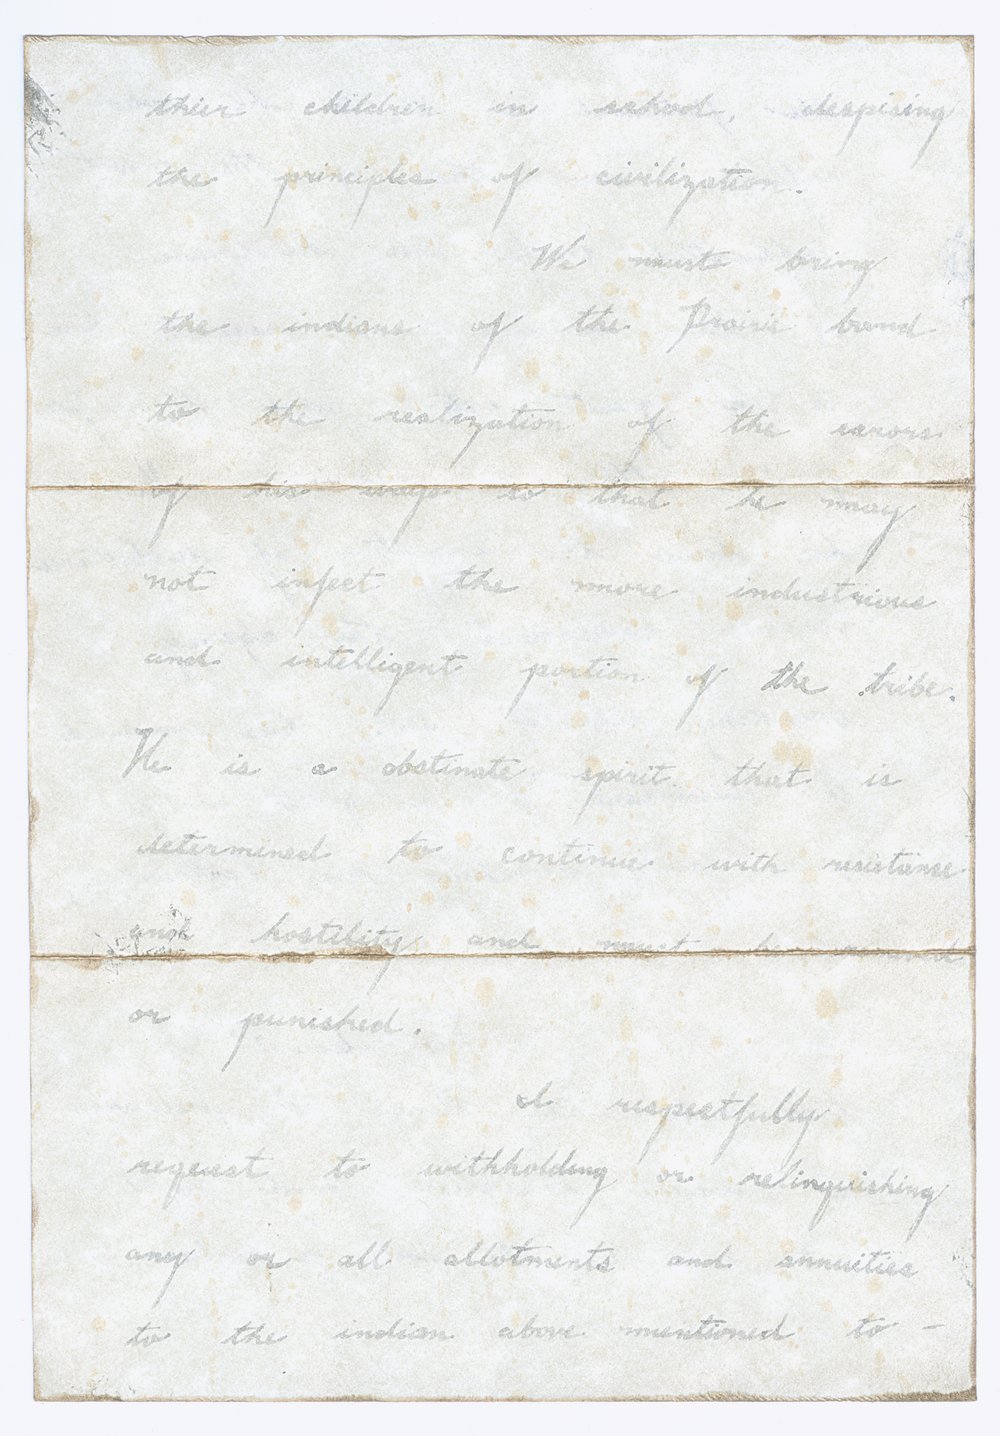 thier children in school, despising
the principles of civilization.
We must bring
the indians of the Prairie band
to the realization of the errors
of his ways so that he may
not infect the more industrious
and intelligent portion of the tribe.
He is a obstinate spirit that is
determined to continue with resistance
and hostility and must be
or punished.
I respectfully
request to withholding or relinquishing
any or all allotments and annuities
to the indian above mentioned to –